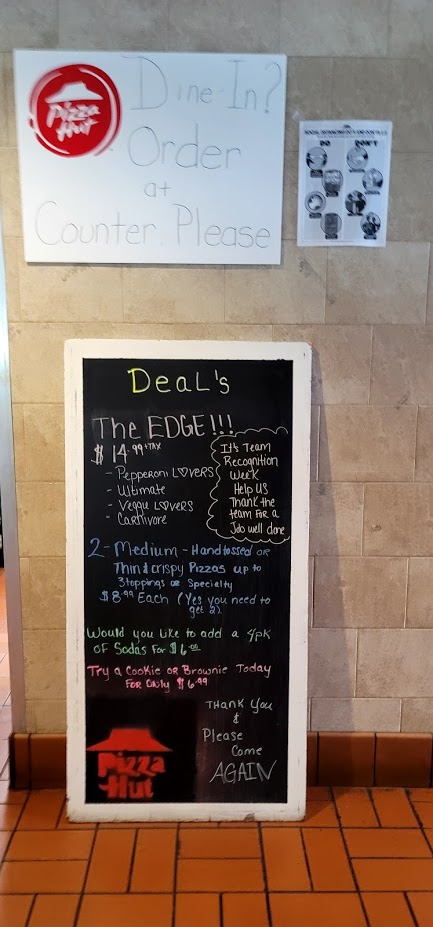 Pizza Hut
Dine-In?
Order
at
Counter Please
DO
DON'T
DeaL's
The EDGE!!!
$14.99+TAX
- Pepperoni L♡VERS
- Ultimate
- Veggie L♡VERS
- Carnivore
It's Team
Recognition
Week
Help US
Thank the
team For a
Job well done
2-Medium-Handtossed or
Thin & crispy Pizzas up to
3 toppings or Specialty
$8.99 Each (Yes you need to
get 2).
Would you Like to add a 4pk
OF Sodas For $6.00
Try a Cookie or Brownie Today
For Only $6.99
Thank You
&
Please
Come
AGAIN
Pizza
Hut